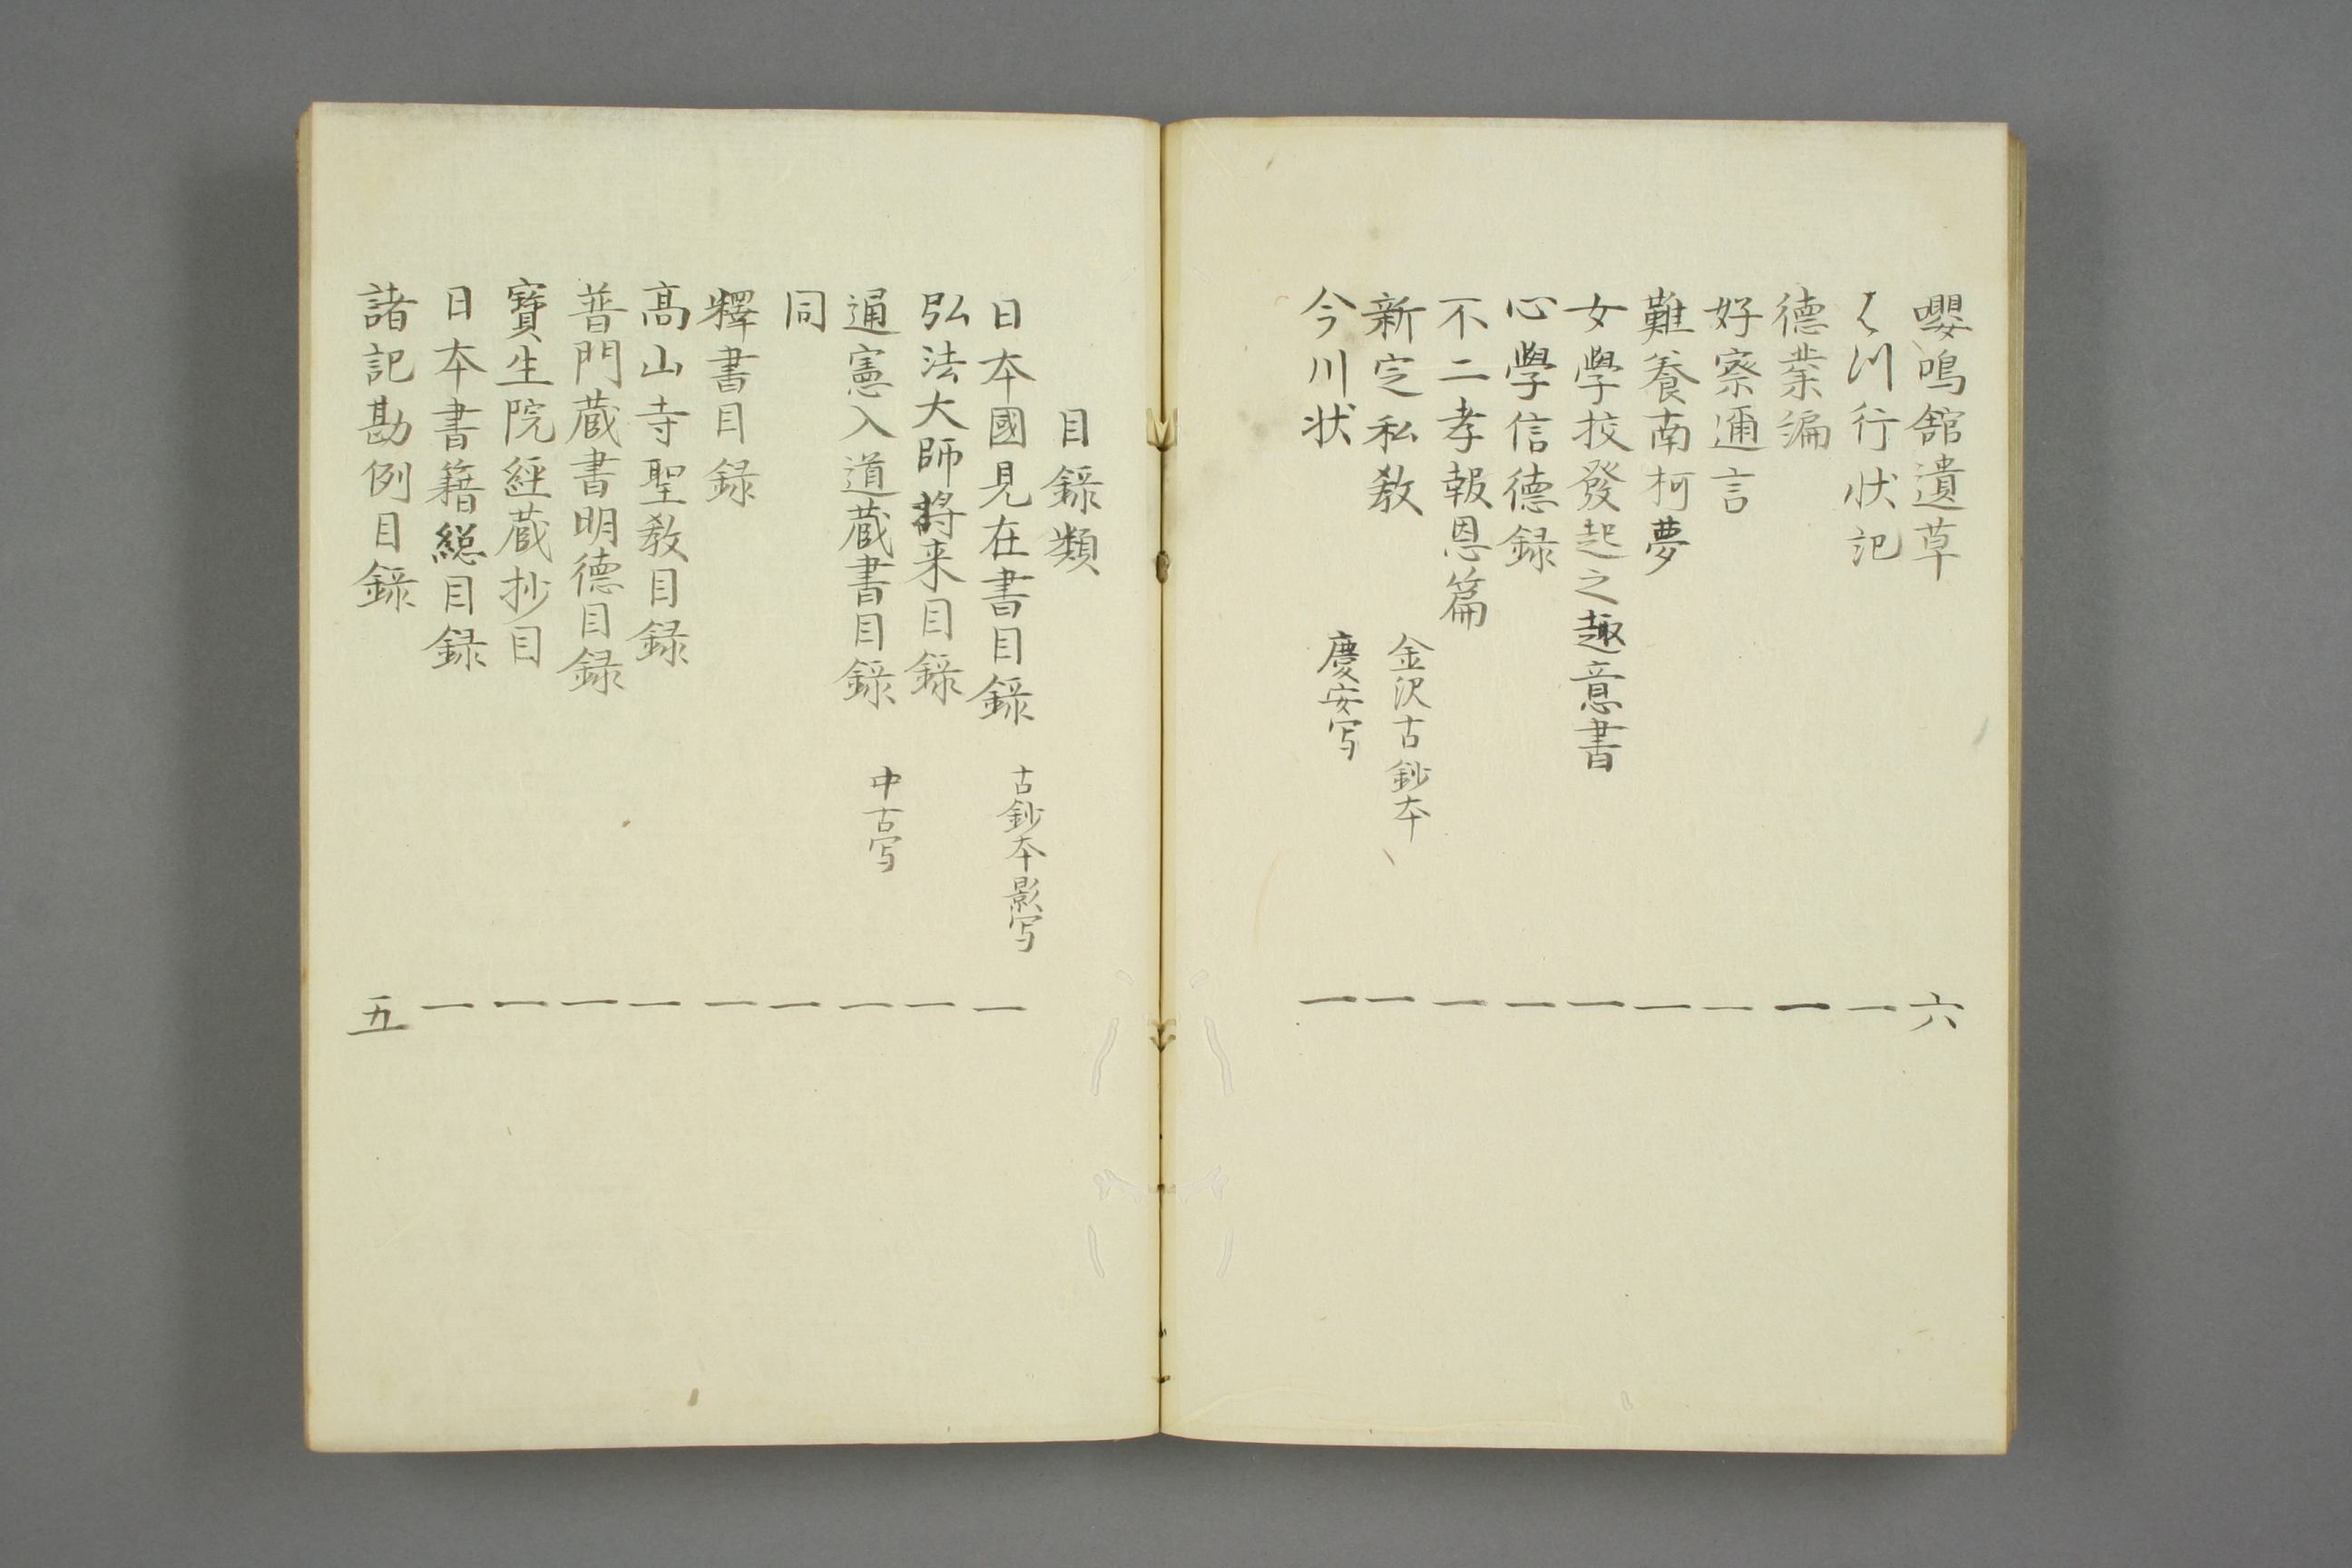 嚶鳴舘遺草 六
川行状記 一
徳業編 一
好察邇言 一
難養南柯夢 一
女學校發起之趣意書 一
心學信徳録 一
不二孝報恩篇 一
新定私教 金沢古鈔本 一
今川状 慶安写 一
目録類
日本國見在書目録 古鈔本影写 一
弘法大師将来目録 一
通憲入道蔵書目録 中古写 一
同 一
釋書目録 一
高山寺聖教目録 一
普門蔵書明德目録 一
寶生院経蔵抄目 一
日本書籍総目録 一
諸記勘例目録 五